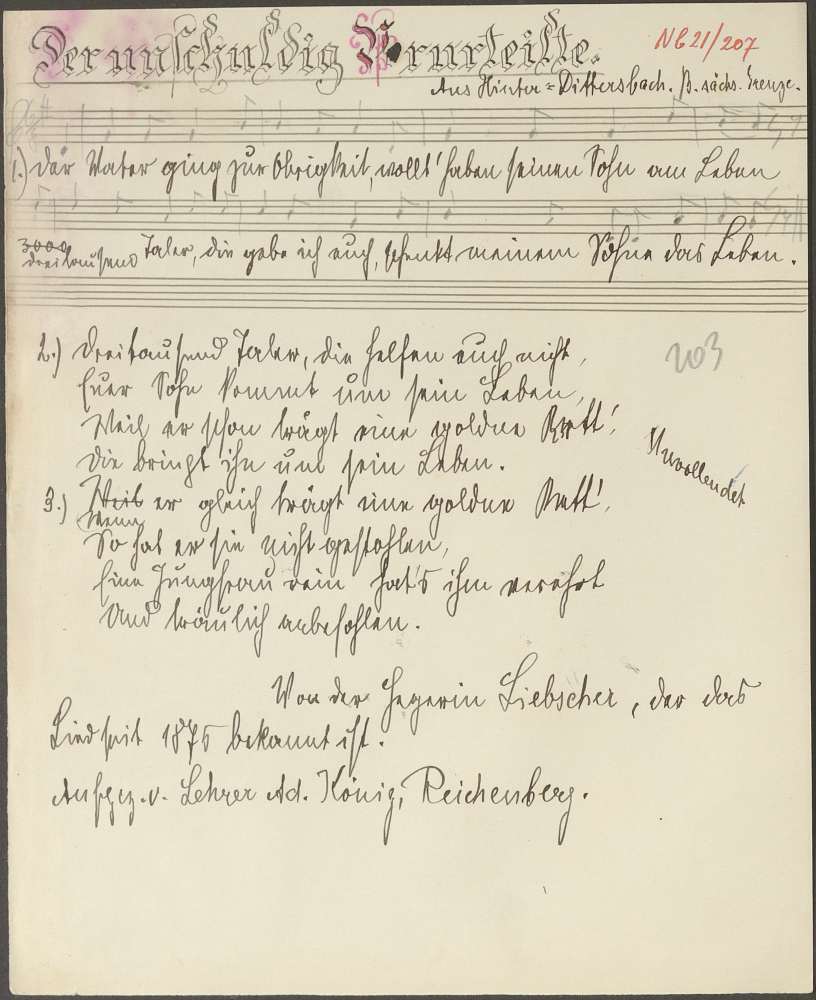 Der unschuldig Verurteilte.
NB 21/207
Aus Hinter-Dittersbach. B. sächs. Grenze.
1.) Där Vater ging zur Obrigkeit, wollt' haben seinen Sohn am Leben
3000
dreitausend Taler, die gebe ich euch, schenkt meinem Sohne das Leben.
2.) Dreitausend Taler, die helfen euch nicht,
203
Euer Sohn kommt um sein Leben,
Weil er schon trägt eine goldne Kett',
Unvollendet
Die bringt ihn um sein Leben.
3.) Weil er gleich trägt eine goldne Kett',
Wenn
So hat er sie nicht gestohlen,
Eine Jungfrau rein hat's ihm verehrt
Und träulich anbefohlen.
Von der Hegerin Liebscher, der das
Lied seit 1875 bekannt ist.
Aufgez. v. Lehrer Ad. König, Reichenberg.